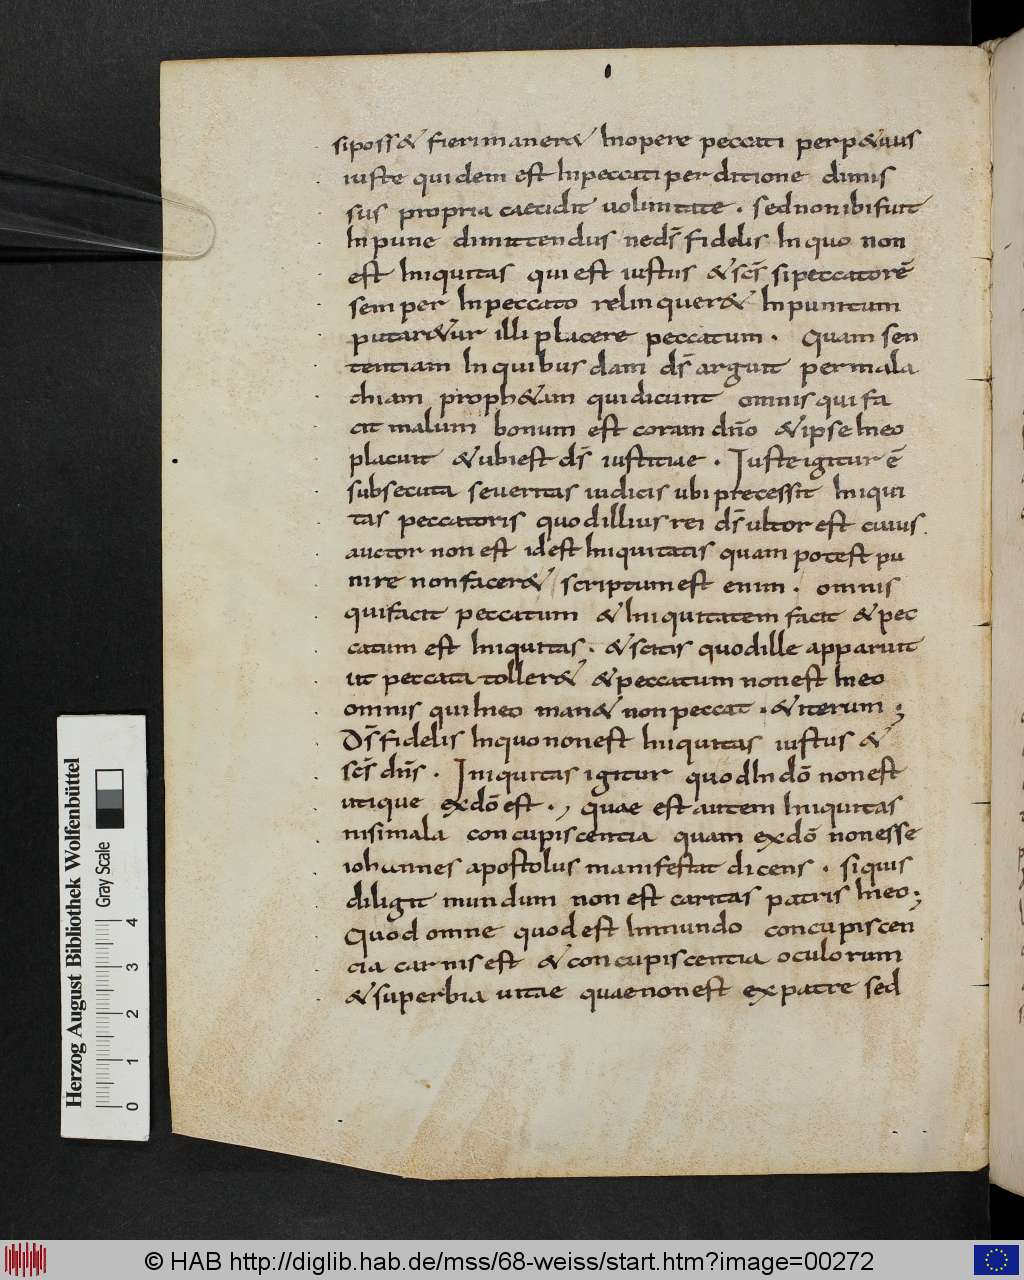 siposs& fieri maner& Inopere peccati perp&uus
iuste quidem est Inpeccati perditione dimis
sus propria caecidit uoluntate . sed non ibi fuit
Inpune dimittendus neds̄ fidelis In quo non
est Iniquitas qui est iustus &scs̄ si peccatorē
semper Inpeccato relinquer& Inpunitum
putar&ur illi placere peccatum . Quam sen
tentiam In quibusdam ds̄ arguit per mala
chiam proph&am qui dicunt omnis qui fa
cit malum bonum est coram dn̄o &ipse Ineo
placuit &ubi est ds̄ iustitiae . Iuste igitur ē
subsecuta seueritas iudicis ubi precessit Iniqui
tas peccatoris quod illius rei ds̄ ultor est cuius
auctor non est id est Iniquitatis quam potest pu
nire non facer& scriptum est enim . omnis
qui facit peccatum & Iniquitatem facit & pec
catum est Iniquitas . &scitis quod ille apparuit
ut peccata toller& &peccatum non est Ineo
omnis qui Ineo man& non peccat . &iterum ;
Ds̄ fidelis Inquo non est Iniquitas iustus &
scs̄ dn̄s . Iniquitas igitur quod In dō non est
utique exdō est . , quae est autem Iniquitas
nisi mala concupiscentia quam exdō non esse
iohannes apostolus manifestat dicens . si quis
diligit mundum non est caritas patris Ineo ;
Quod omne quod est Inmundo concupiscen
cia carnis est & concupiscentia oculorum
&superbia uitae quae non est expatre sed
Herzog August Bibliothek Wolfenbüttel
Gray Scale
0 1 2 3 4
© HAB http://diglib.hab.de/mss/68-weiss/start.htm?image=00272